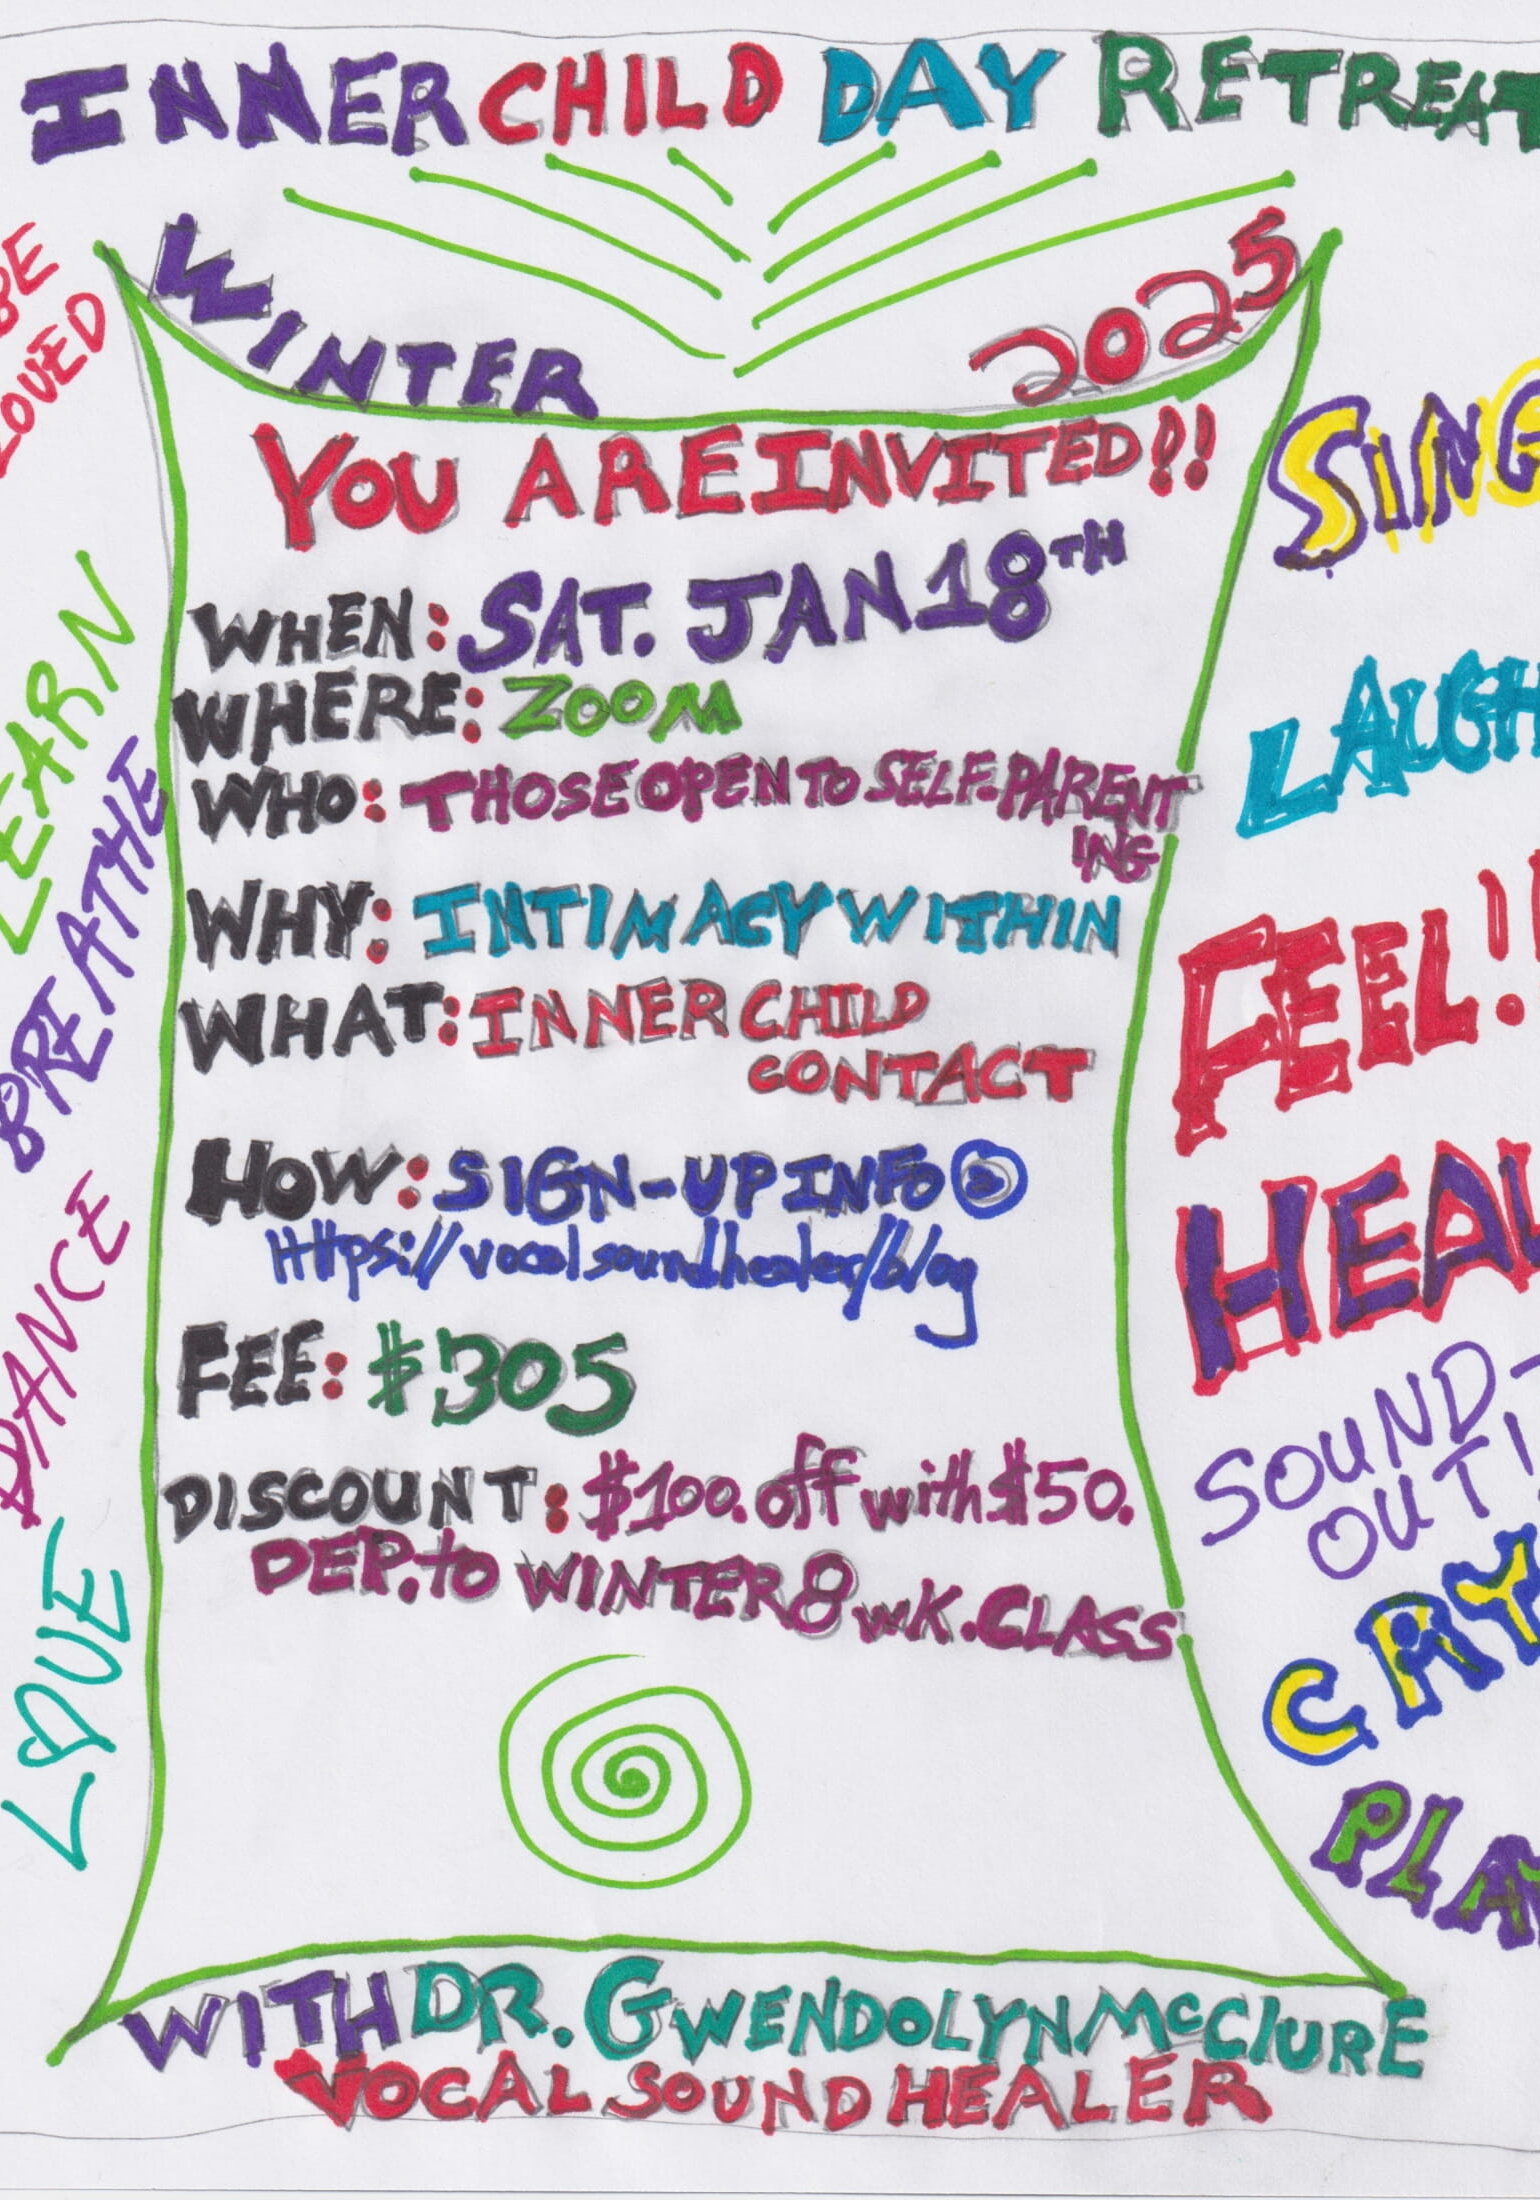 INNER CHILD DAY RETREAT
WINTER 2025
YOU ARE INVITED!!
WHEN: SAT. JAN 18TH
WHERE: ZOOM
WHO: THOSE OPEN TO SELF-PARENT
ING
WHY: INTIMACY WITHIN
WHAT: INNER CHILD
CONTACT
HOW: SIGN-UP INFO @
https://vocalsoundhealer/blog
FEE: $305
DISCOUNT: $100. off with $50.
DEP. to WINTER 8 WK. CLASS
WITH DR. GWENDOLYN McClURE
VOCAL SOUND HEALER
BE
LOVED
LEARN
BREATHE
DANCE
LOVE
SING
LAUGH
FEEL!!
HEAL
SOUND-
OUT!
CRY
PLAY